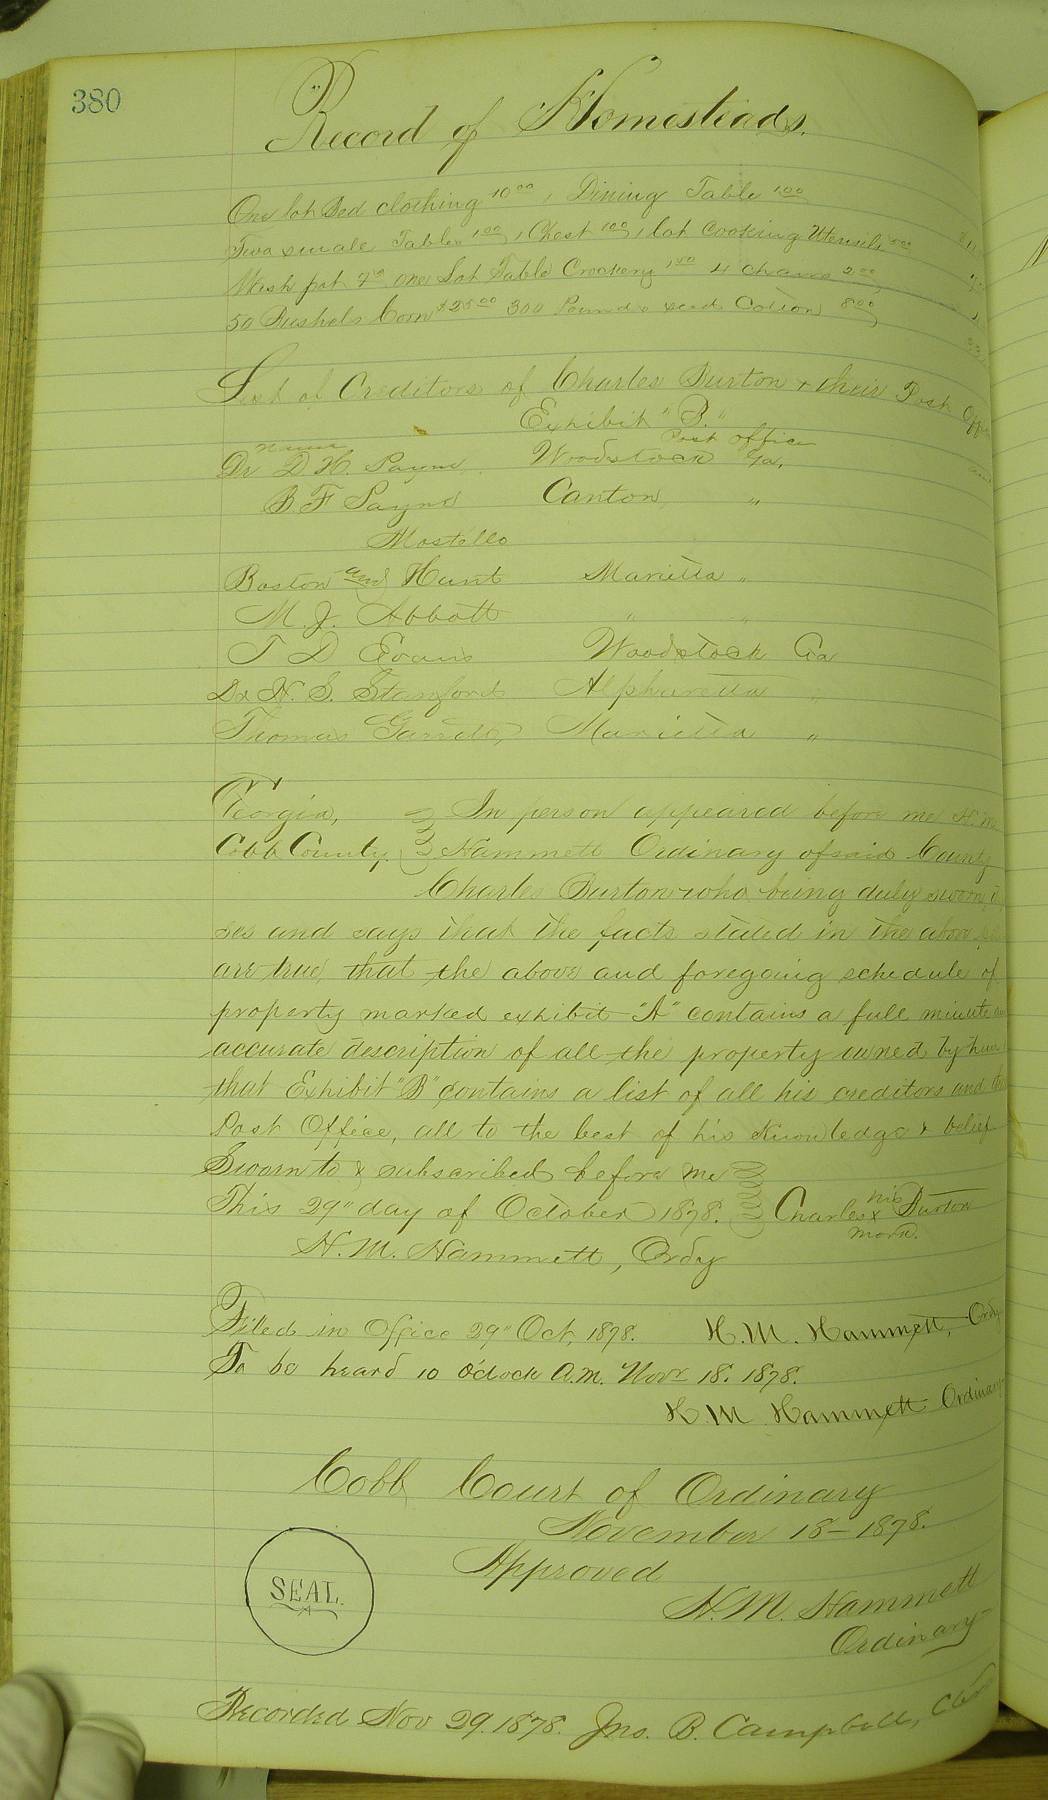 380
Record of Homesteads.
One lot Bed clothing 10 00 1 Dining Table 1 00
Two smale Tables 1 00, 1 Chest 1 00, 1 lot Cooking Utensils
Wash pot one Lot Table Crockery 1 50 4 chairs 2 00
50 Bushels Corn $25 00 300 Pounds seed Cotton 8 00
List of Creditors of Charles Burton & their Post Office
Exhibit "B."
Name Post office
Dr D H. Payne Woodstock Ga,
B F Payne Canton "
Mostello
Boston and Hunt Marietta "
M. J. Abbott " "
T D Evans Woodstock Ga
Dr N. S. Stanford Alpharetta "
Thomas Marietta "
Georgia, In person appeared before me H. M.
Cobb County. Hammett Ordinary of said County
Charles Burton who being duly sworn
ses and says that the facts stated in the above
are true, that the above and foregoing schedule of
property marked exhibit "A" contains a full minute
accurate description of all the property owned by him
that Exhibit "B" contains a list of all his creditors and
Post Office, all to the best of his Knowledge & belief
Sworn to & subscribed before me
This 29" day of October 1878. Charles his x mark Burton
H. M. Hammett, Ordy
Filed in Office 29" Oct, 1878. H. M. Hammett, Ordy
To be heard 10 o'clock A.M. Novr 18. 1878.
H. M. Hammett Ordinary
Cobb Court of Ordinary
November 18 - 1878.
Approved
SEAL.
H. M. Hammett
Ordinary
Recorded Nov 29. 1878. Jno. B. Campbell, Clerk